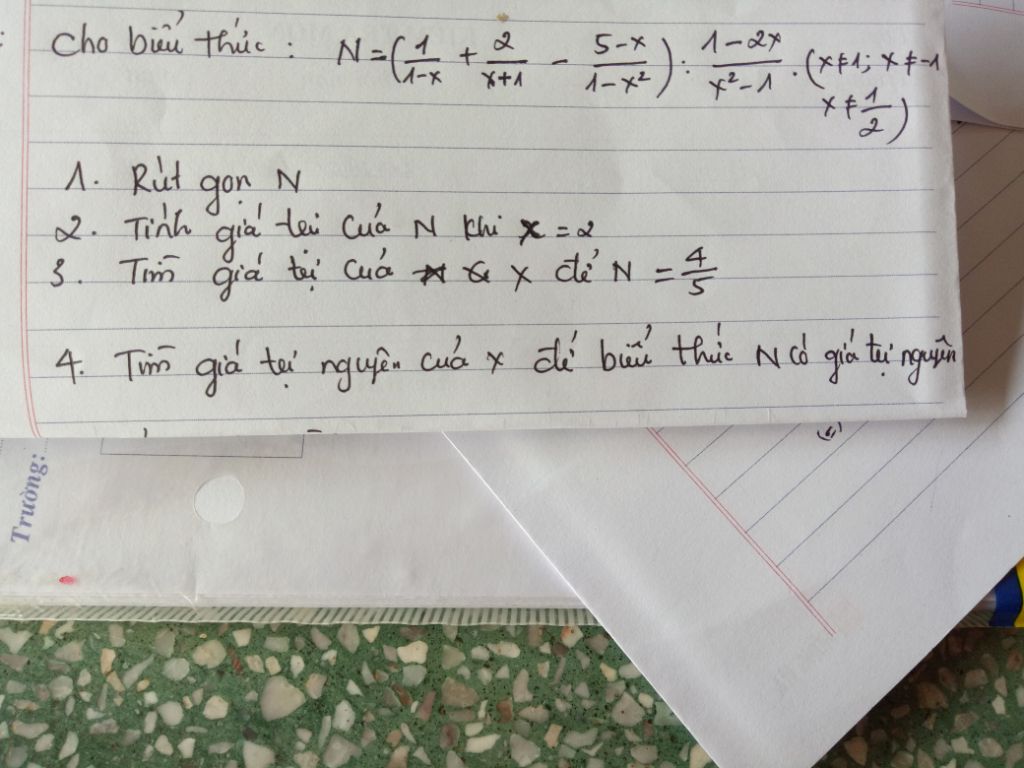 Cho biểu thức : N = (1/(1-x) + 2/(x+1) - (5-x)/(1-x²)) : (1-2x)/(x²-1) . (x≠1; x≠-1
x≠1/2)
1. Rút gọn N
2. Tính giá trị của N khi x = 2
3. Tìm giá trị của x để N = 4/5
4. Tìm giá trị nguyên của x để biểu thức N có giá trị nguyên
Trường: